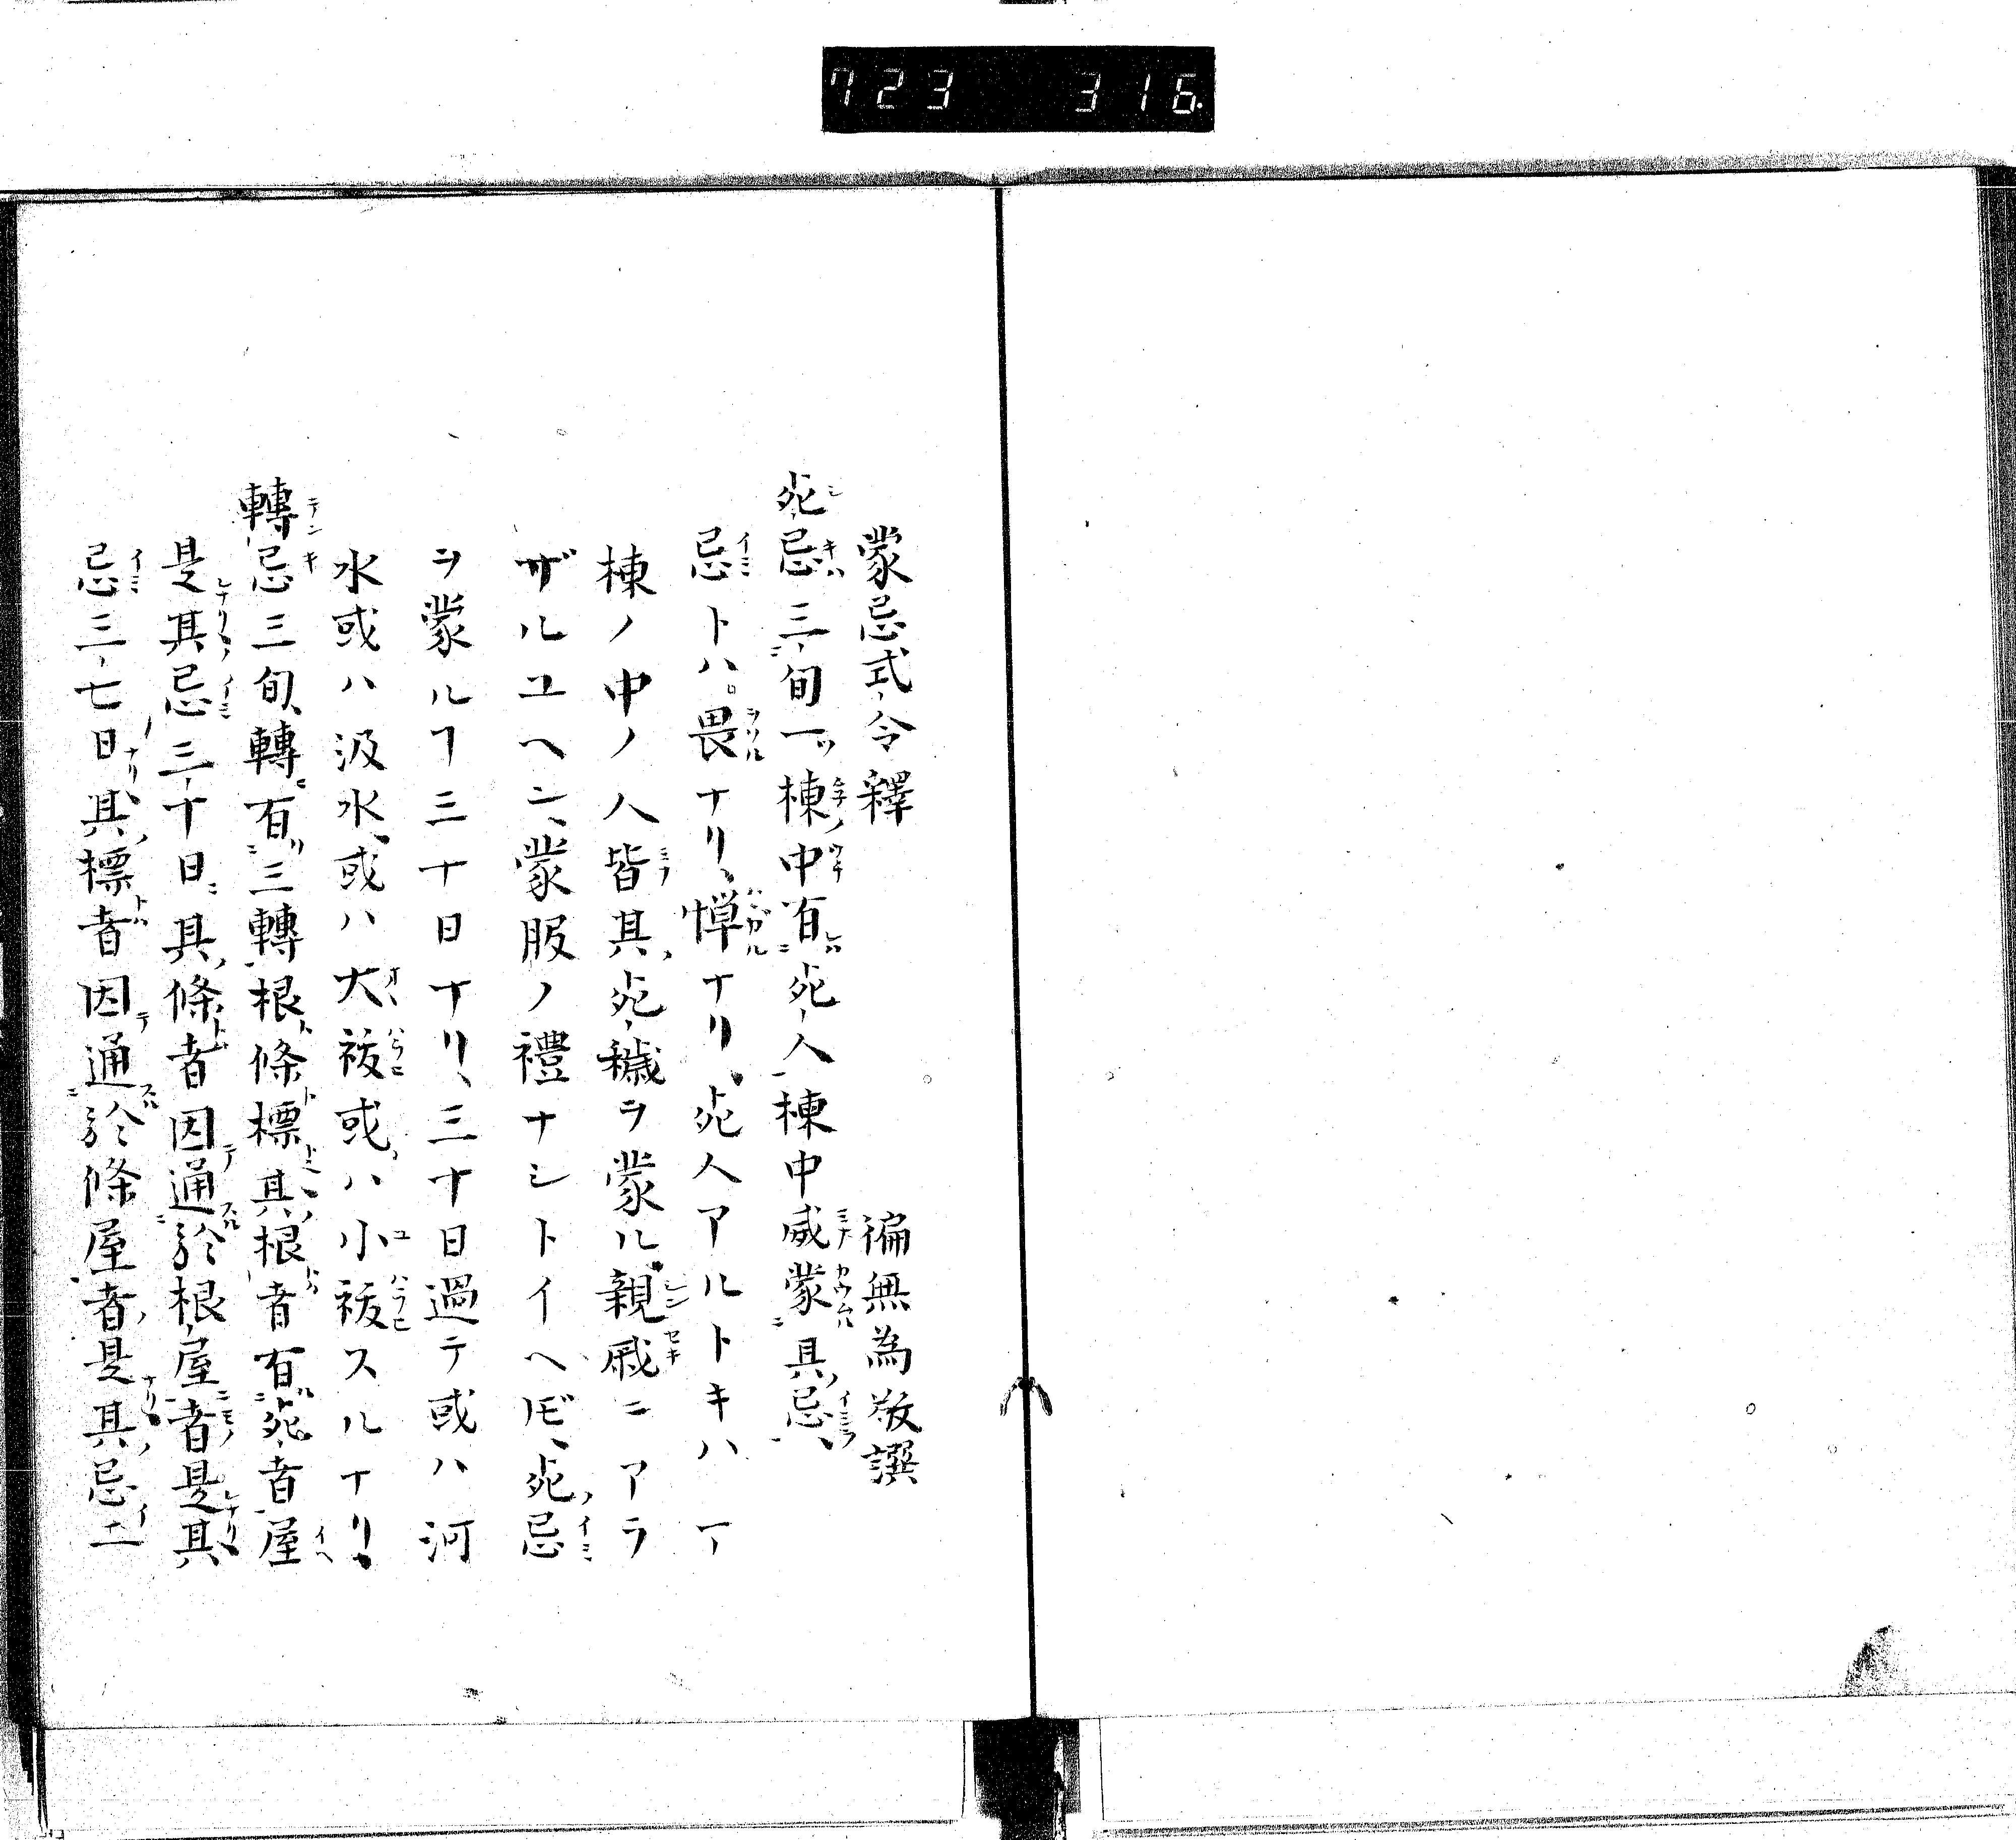 723 316
蒙忌式令釋
徧無為敬譔
死忌三旬一棟中有死人棟中咸蒙其忌
忌トハ畏ナリ、憚ナリ、死人アルトキハ一
棟ノ中ノ人皆其死穢ヲ蒙ル、親戚ニアラ
ザルユヘニ、蒙服ノ禮ナシトイヘ𪜈、死忌
ヲ蒙ルヿ三十日ナリ、三十日過テ或ハ河
水或ハ汲水、或ハ大祓或ハ小祓スルナリ、
轉忌三旬、轉有三轉根條標其根者有死者屋
是其忌三十日其條者因通於根屋者是其
忌三七日其標者因通於條屋者是其忌二